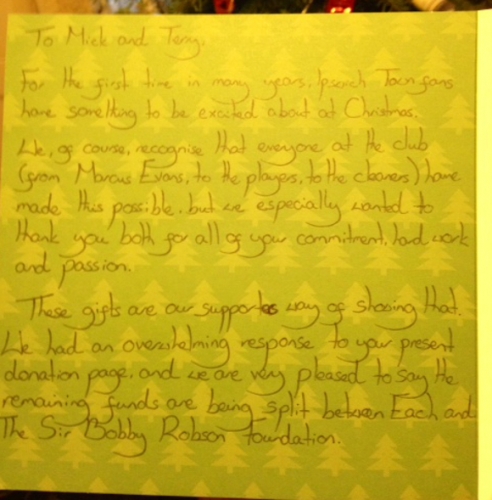 To Mick and Terry,
For the first time in many years, Ipswich Town fans
have something to be excited about at Christmas.
We, of course, recognise that everyone at the club
(from Marcus Evans, to the players, to the cleaners) have
made this possible, but we especially wanted to
thank you both for all of your commitment, hard work
and passion.
These gifts are our supporters way of showing that.
We had an overwhelming response to your present
donation page, and we are very pleased to say the
remaining funds are being split between Each and
The Sir Bobby Robson Foundation.